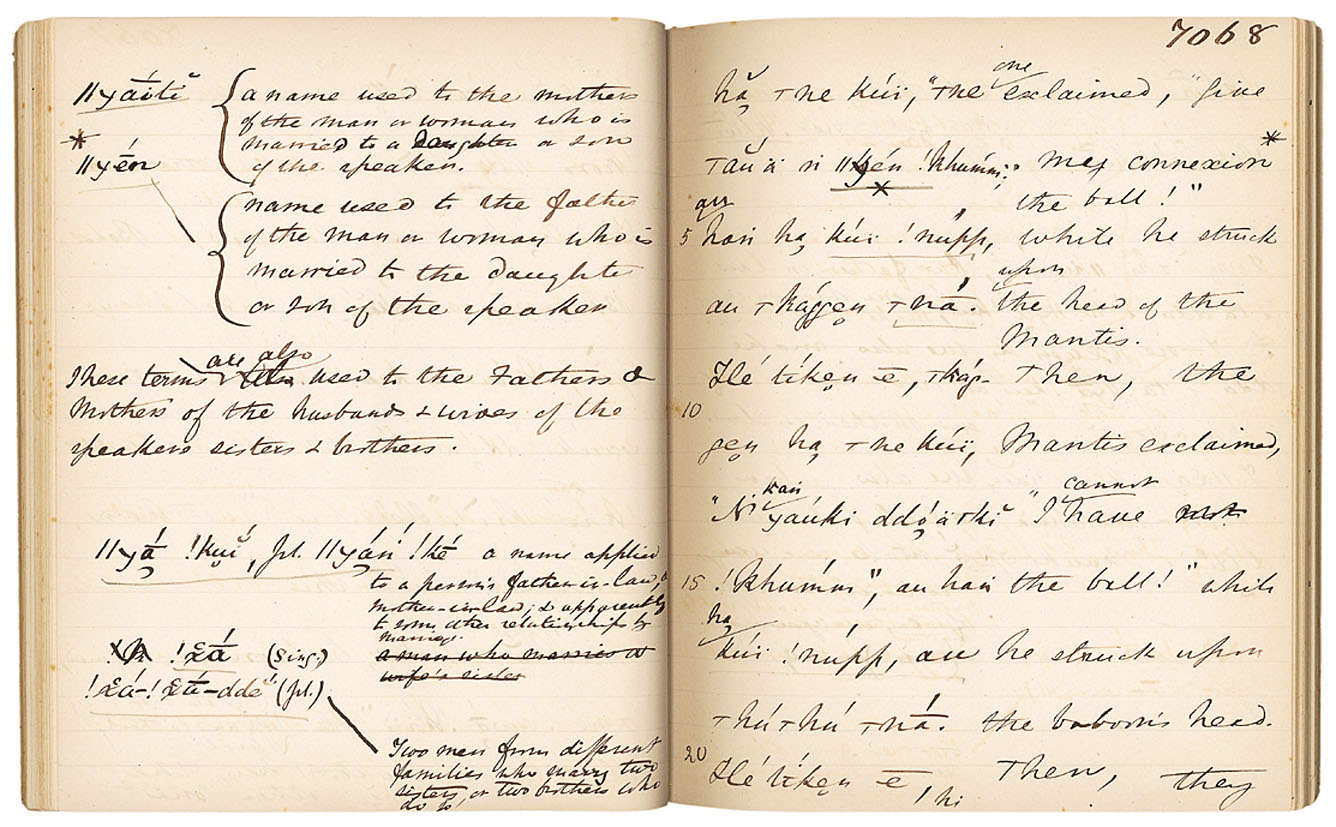 ǁyáítĭ a name used to the mothers
of the man or woman who is
married to a daughter or son
of the speaker.
*
ǁyén
name used to the father
of the man or woman who is
married to the daughter
or son of the speaker
These terms are also used to the Fathers &
Mothers of the husbands & wives of the
speakers sisters & brothers.
ǁyá̄ !kuĭ, pl. ǁyán !kē a name applied
to a person's father-in-law, or
mother-in-law; & apparently
to some other relationship by
marriage.
a man who married a
wife's sister
!£á̄ (Sing.)
!£á-!£á̄-ddé (pl.)
Two men from different
families who marry two
sisters, or two brothers who
do so,
7068
hă̱ ꞇne kúï, "ꞇne one exclaimed, "Give
ꞇaŭ ä n ǁyén !khumm;" my connexion *
*
au the ball!"
5 han ha̱ kúï !nupp, while he struck
upon
au ꞇkággen ꞇnā́. the head of the
Mantis.
Hé tíken ē, ꞇkág- Then, the
10
gen ha̱ ꞇne kúï, Mantis exclaimed,
kan cannot
"N yauki ddóä ꞇkĭ "I have not
15 !khumm", au han the ball!" while
ha̱
kúï !núpp, au he struck upon
ꞇhúꞇhú ꞇnā́. the baboon's head.
20 Hé tíken ē, hi Then, they